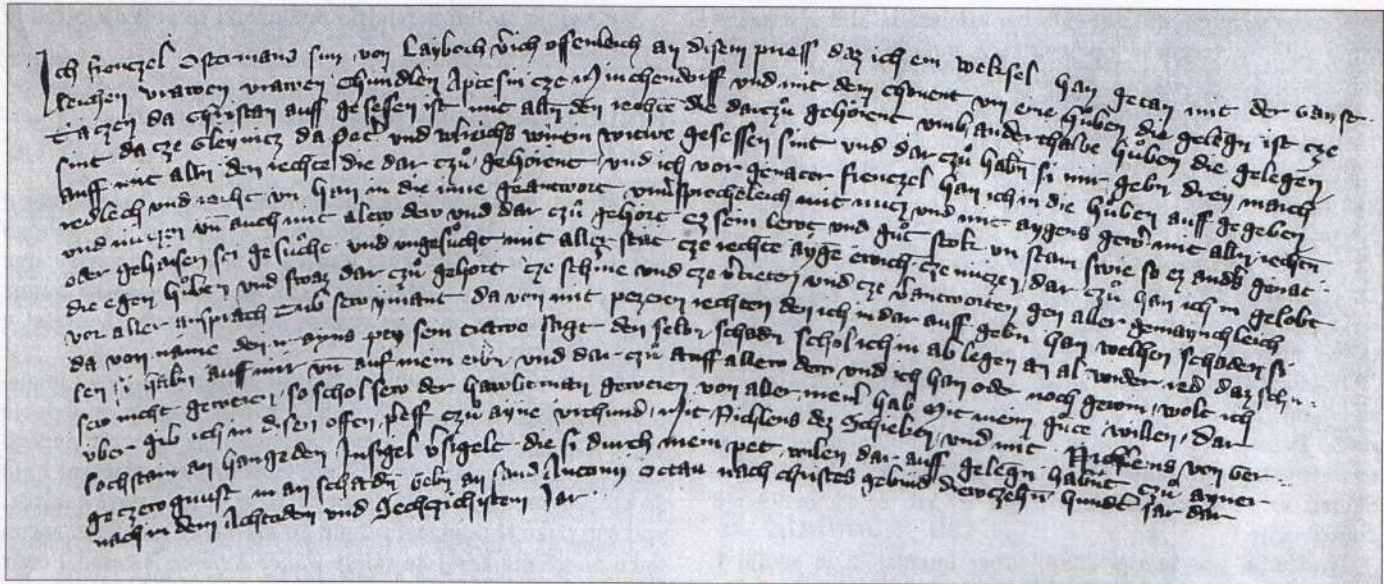 Ich frenczel Ostermans sun von Laybach v̾gich offenleich an disem prieff daz ich ein wechsel han getan mit der gan st
leichen vrawen vrawen chundlen Aptesin cze Minchendorff und mit dem chonent um eine hůben die gelegn ist cze
Taczen da christan auff gesessen ist mit alln den rechte die darczů gehörent umb anderthalbe hůben die gelegen
sint da cze Gleynicz da Pet̾ und Ulrichs witwe gesessen sint und dar czů habn si mir gebn drey march
auff mit alln den rechte die dar czů gehörent, und ich vor genater frenczel han ich in die hůben auff gegeben
redlech und recht un̄ han in die inne geantwort unv̾sprecheleich mit nucz und mit aygens gew̾ mit alln rechtn
und nuczen un̄ auch mit alew dew und dar czů gehört ez sein lewt und gůt stok un̄ stain swie so ez and̾s genat
oder gehaisen sei gesůcht und ungesůcht mit aller stat cze rechte ayge ewich cze niczen, dar czů han ich in gelobt
die egen hůben und swaz dar czů gehöret cze schrine und cze v̾treten und cze v̾antworten gen aller gemaynchleich
vor aller ansprach Tůt sew ymant da von mit pezeren rechten den ich in dar auff gebn han welchen schaden si
da von näme den ir ayns pey sein trawe sagt den selbn schadn schol ich in ab legen an al wider red daz schu
len si habn auff mir un̄ auf mein erbn und dar czů auff allew dew und ich han oder noch gewin, wolt ich
sew nicht geweren, so schol sew der hawbtman geweren von aller mein̾ hab Mit meim gůte willen, Dar
uber gib ich in disen offen prieff czů ayne urchund, Mit Nichlens dez Schreiber und mit Nichlens von Ger
lochstain an hangeden Insigel v̾sigelt die si durch mein pet willen dar auff gelegn habnt czů ayner
geczewgnust in an schadn Gebn an sand Antonii Octau nach christes gebürd drewczehn hundt̾ jar dar
nach in dem Achtoden und Sechczichistem Jar